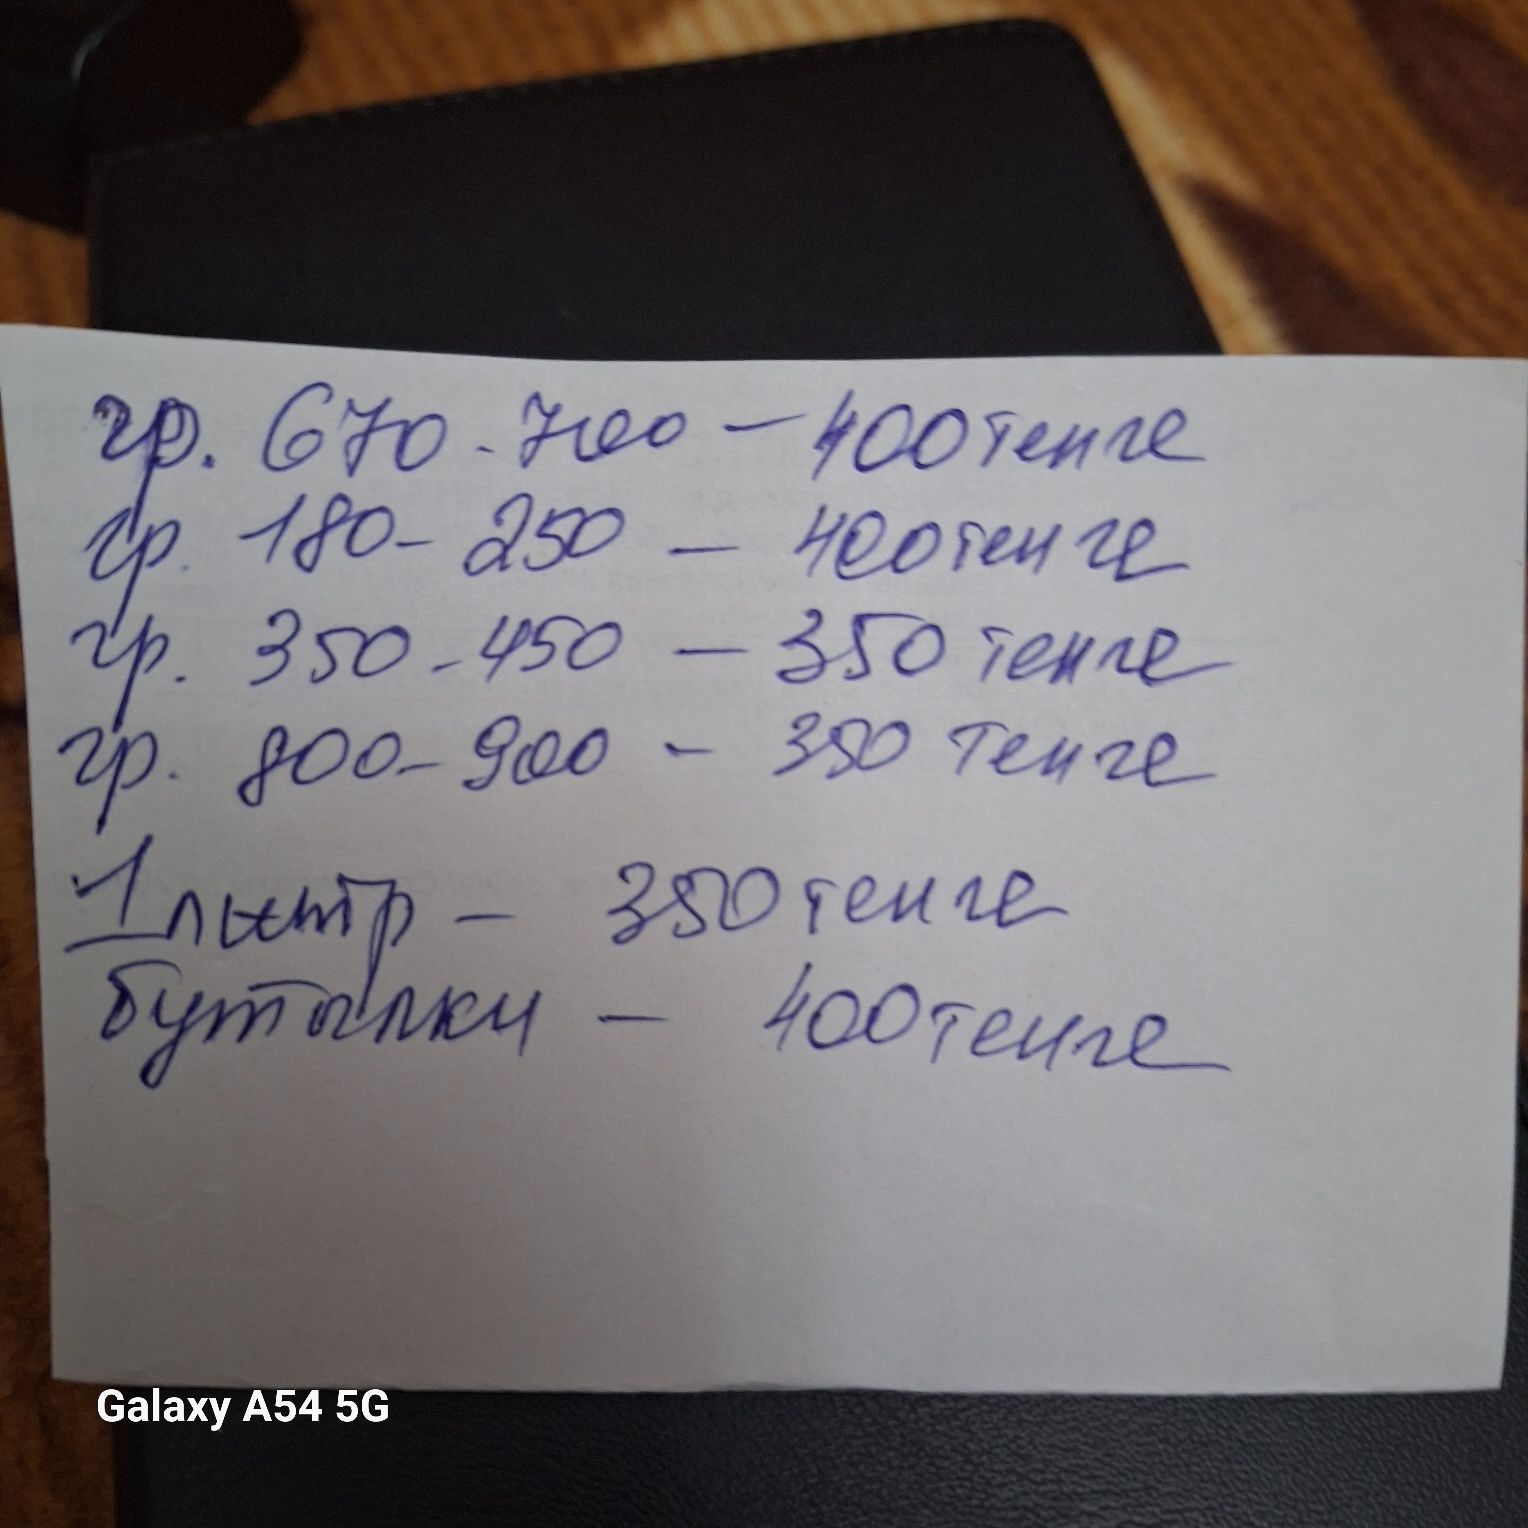 гр. 670-700 – 400 тенге
гр. 180-250 – 400 тенге
гр. 350-450 – 350 тенге
гр. 800-900 – 350 тенге
1 литр – 350 тенге
бутылки – 400 тенге
Galaxy A54 5G